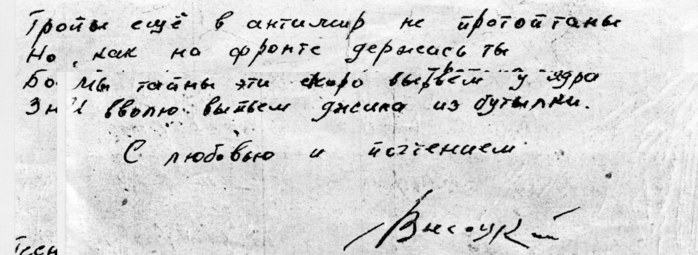 Тропы ещё в антимир не протоптаны
Но, как на фронте держись ты
Бо мы тайны эти скоро вырвем у ядра
Зн И вволю выпьем джина из бутылки.
С любовью и почтением
Высоцкий
Тсен